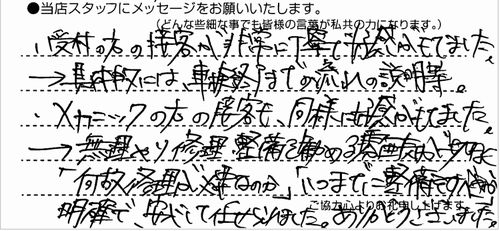 ●当店スタッフにメッセージをお願いいたします。
(どんな些細な事でも皆様の言葉が私共の力になります。)
・受付の方の接客が非常に丁寧で好感がもてました。
→具体的には、車検終了までの流れの説明等。
・メカニックの方の接客も、同様に好感がもてました。
→無理やり修理、整備を勧める雰囲気がなく
「何故修理が必要なのか」「いつまでに整備すべきか」
明確で、安心して任せられました。ありがとうございました。
ご協力心よりお礼申し上げます。